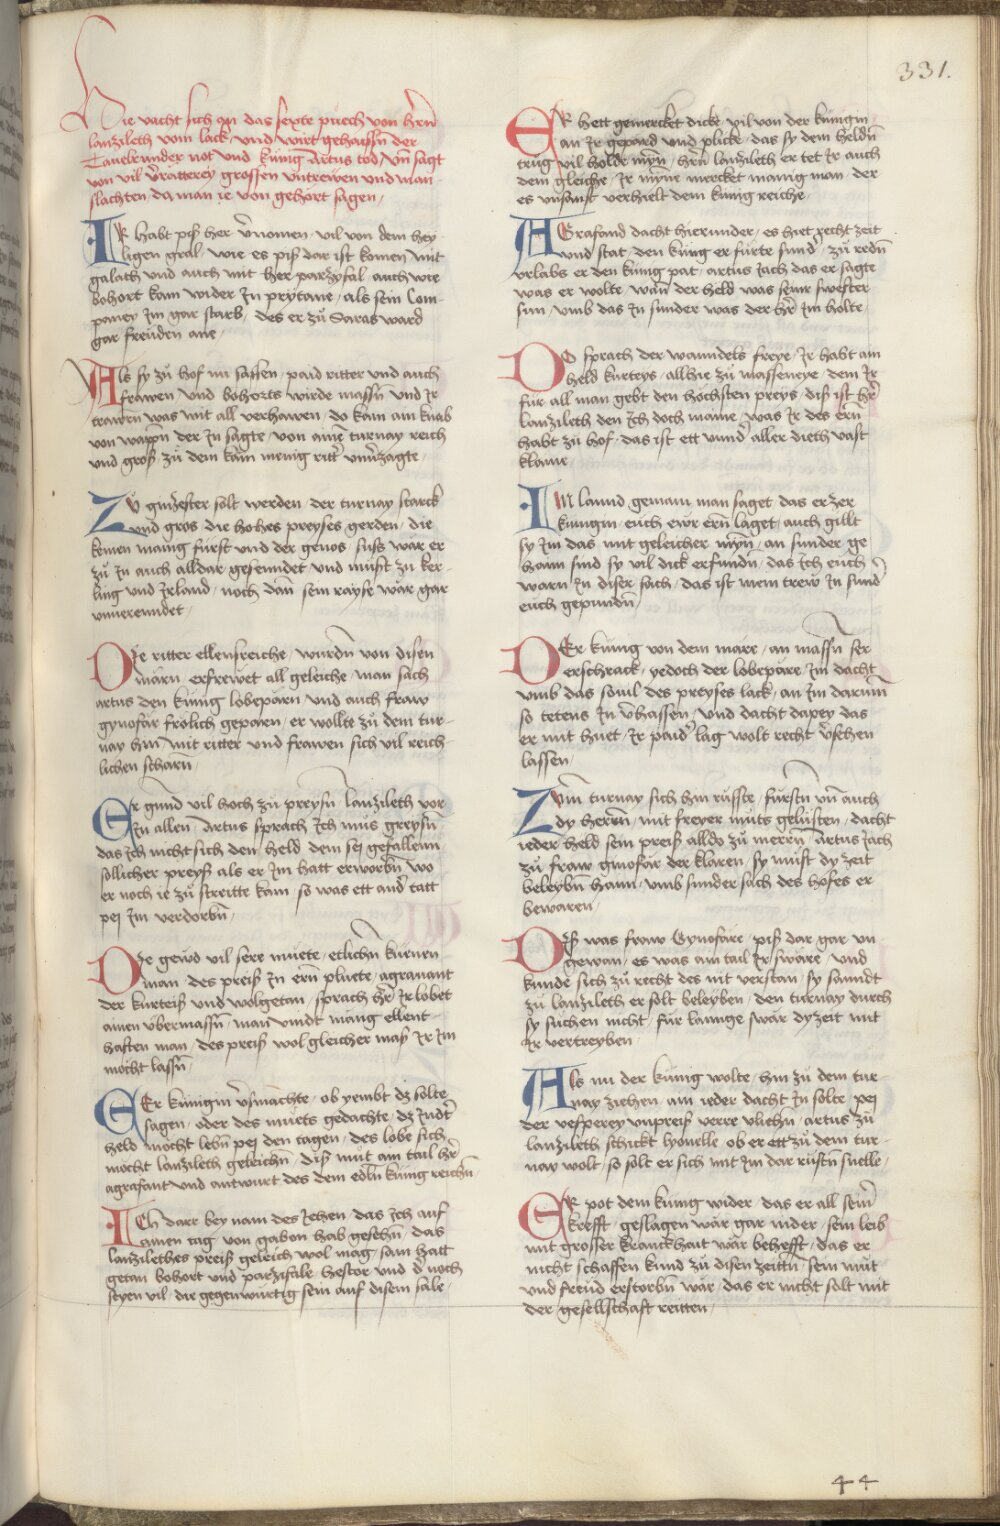 331.
Hie vacht sich an das sexte puech von hern̄
lanzileth vom lack / und wirt gehaissn̄ der
Tauelrunder not und kunig Artus tod / Vn̄ sagt
von vil vrattereÿ grossen untrewen und man
slachten / da man ie von gehort sagen /
IR habt piß her v̄nomen / vil von dem heÿ
ligen gral / wie es piß dar ist komen mit
galath und auch mit her parzyfal / auch wie
bohort kam wider In prÿtane / als sein Com
paneÿ im gar starb / des er zů Saras ward
gar freuden ane /
Als sy zů hof nu sassen / paid ritter und auch
frawen und bohorts wirde massn̄ und Ir
trawren was mit all verhawen / do kam ain knab
von wappn̄ der In sagte / von aine turnay reich
und groß zů dem kam menig rittr̄ unv̄zagte /
ZU solt werden / der turnay starck
und gros / die hohes preyses gerden / die
kemen manig furst und der genos / suss wär er
zů In auch alldar gesenndet / und must zu ker
ling und Irland / noch dan̄ sein rayse wär gar
unverenndet /
DIe ritter ellensreiche / wurdn̄ von disen
märn erfrewet all geleiche / man sach
artus den kunig lobepärn und auch fraw
gynofär frölich geparen / er wollte zů dem tur
nay hin / mit ritter und frawen sich vil reich
lichen scharn̄ /
Er gund vil hoch zů preysn̄ lanzileth vor
In allen / Artus sprach Ich mus greysn̄
das Ich nicht sich den held dem sej gefallenn
sollicher preyß als er Im hatt erworbn̄ wo
er noch ie zů streitte kam / so was ett and̄ tatt
pej Im verdorbn̄ /
DIe gewd vil sere muete / etlichn̄ kurnen
man / des preiß In ern̄ pluete / agrauant
der kurteiß und wolgetan / sprach hr̄ Ir lobet
ainen ubermassn̄ / man vindt manig ellent
hafften man / des preiß wol gleicher maß Ir Im
mocht lassn̄ /
DEr kunigin v̄smachte / ob yembt dz solte
sagen / oder des muets gedachte / dz Indt̄
held mocht lebn̄ pej den tagen / des lobe sich
mocht lanzileth geleichn̄ / diß mut am tail hr̄
agrafant und antwurt des dem edln̄ kunig reichn̄
ICh darr beÿ nam des Iehen / das Ich auf
ainen tag von gabon hab gesehn̄ / das
lanzilethes preiß geleich wol mag / sam hatt
getan bohort und parzifale / hestor und d̄ noch
seyen vil / die gegenwürtig sein auf disem sale /
ER hett gemercket dicke / vil von der kunigin
an Ir gepard und plicke / das sy dem heldn̄
trug vil holde myn̄ / hern̄ lanzileth er tet Ir auch
dem gleiche / Ir myne mercket manig man / der
es unsanft verhielt dem kunig reiche /
AGrafand dacht hierunder / es hiet recht zeit
und stat / den kung er furte sund̄ / zů redn̄
urlabs er den kunig pat / artus Iach das er sagte
was er wolte / wan̄ der held was seinr swester
sun / umb das In sunder was der hr̄ Im holte /
DO sprach der wanndels freye / Ir habt ain
held kurteys / allhie zů masseneye / dem Ir
fur all man gebt den höchsten preys / diß ist hr̄
lanzileth den Ich doch maine / was Ir des ern̄
habt zů hof / das ist ett unnd̄ aller dieth vast
klaine /
IM lannd gemain man saget / das er zer
kunigin / euch ewr ern̄ laget / auch gillt
sy Im das mit geleicher myn̄ / an sunder ge
haim sind sy vil dick erfundn̄ / das Ich euch
warn In diser sach / das ist mein trew In sund̄
euch gepundn̄ /
DEr kunig von dem märe / an massn̄ ser
erschrack / yedoch der lobepäre / Im dacht
umb das somil des preyses lack / an Im darum̄
so tetens In v̄hassen / und dacht dapey das
er mit huet / Ir paid̄ lag wolt recht v̄sehen
lassen /
ZUm turnay sich hin russte / furstn̄ vn̄ auch
dy herrn̄ / mit freyer muts gelusten / dacht
ieder held sein preiß alldo zů merrn̄ / Artus Iach
zů fraw ginofär der klaren / sy must dy zeit
beleybn̄ haim / umb sunder sach des hofes er
bewaren /
DIß was fraw Gynofäre / piß dar gar un
gewan / es was am tail Ir swäre / und
kunde sich zů recht des nit verstan / sy sanndt
zů lanzileth er solt beleyben / den turnay durch
sy suchen nicht / fur lannge swär dyzeit mit
Ir vertreyben /
Als nu der kunig wolte / hin zů dem tur
nay ziehen / am ieder dacht In solte / pej
der vesperey unpreiß verre vliehn̄ / artus zů
lanzileth schickt lyonelle / ob er ett zů dem tur
nay wolt / so solt er sich mit Im dar rustn̄ snelle /
ER pot dem kunig wider / das er all sein̄
krefft / geslagen wär gar nider / sein leib
mit grosser kranckhait wär behefft / das er
nicht schaffen kund zů disen zeittn̄ / sein mut
und freud erstorbn̄ wär / das er nicht solt mit
der gesellschaft reitten /
44